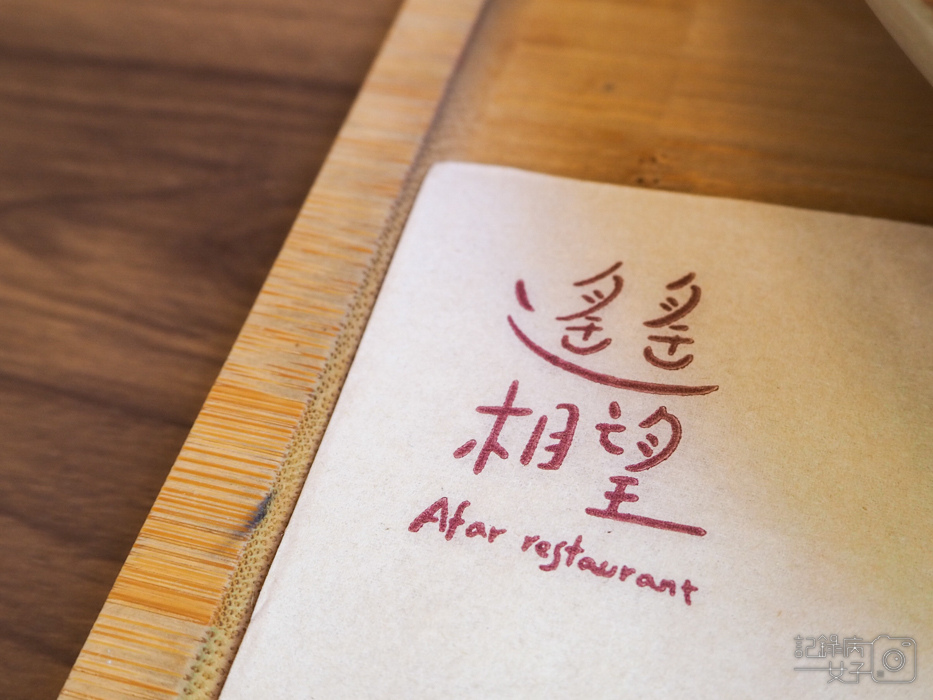 遙遙
相望
Afar restaurant
記錄病
女子